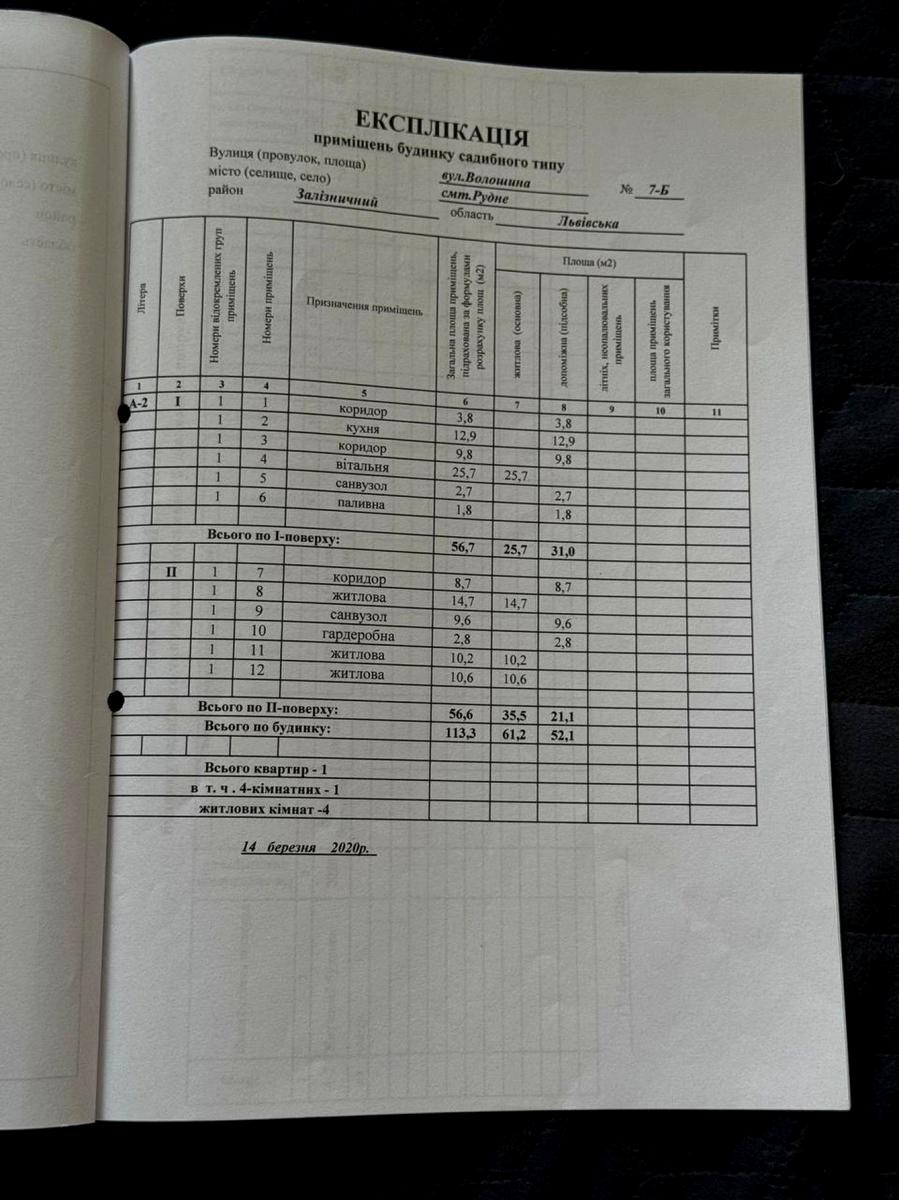 ЕКСПЛІКАЦІЯ
приміщень будинку садибного типу
Вулиця (провулок, площа) вул.Волошина № 7-Б
місто (селище, село) смт.Рудне
район Залізничний область Львівська
Літера
Поверхи
Номери відокремлених груп приміщень
Номери приміщень
Призначення приміщень
Загальна площа приміщень, підрахована за формулами розрахунку площ (м2)
Площа (м2)
житлова (основна)
допоміжна (підсобна)
літніх, неопалювальних приміщень
площа приміщень загального користування
Примітки
1 2 3 4 5 6 7 8 9 10 11
А-2 I 1 1 коридор 3,8 3,8
1 2 кухня 12,9 12,9
1 3 коридор 9,8 9,8
1 4 вітальня 25,7 25,7
1 5 санвузол 2,7 2,7
1 6 паливна 1,8 1,8
Всього по I-поверху: 56,7 25,7 31,0
II 1 7 коридор 8,7 8,7
1 8 житлова 14,7 14,7
1 9 санвузол 9,6 9,6
1 10 гардеробна 2,8 2,8
1 11 житлова 10,2 10,2
1 12 житлова 10,6 10,6
Всього по II-поверху: 56,6 35,5 21,1
Всього по будинку: 113,3 61,2 52,1
Всього квартир - 1
в т. ч . 4-кімнатних - 1
житлових кімнат -4
14 березня 2020р.